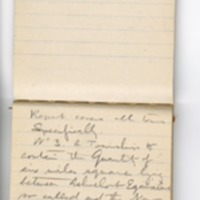 Report covers all towns
Specifically.
N° 3. A Township to
contain the Quantity of
six miles square lying
between
so called and the